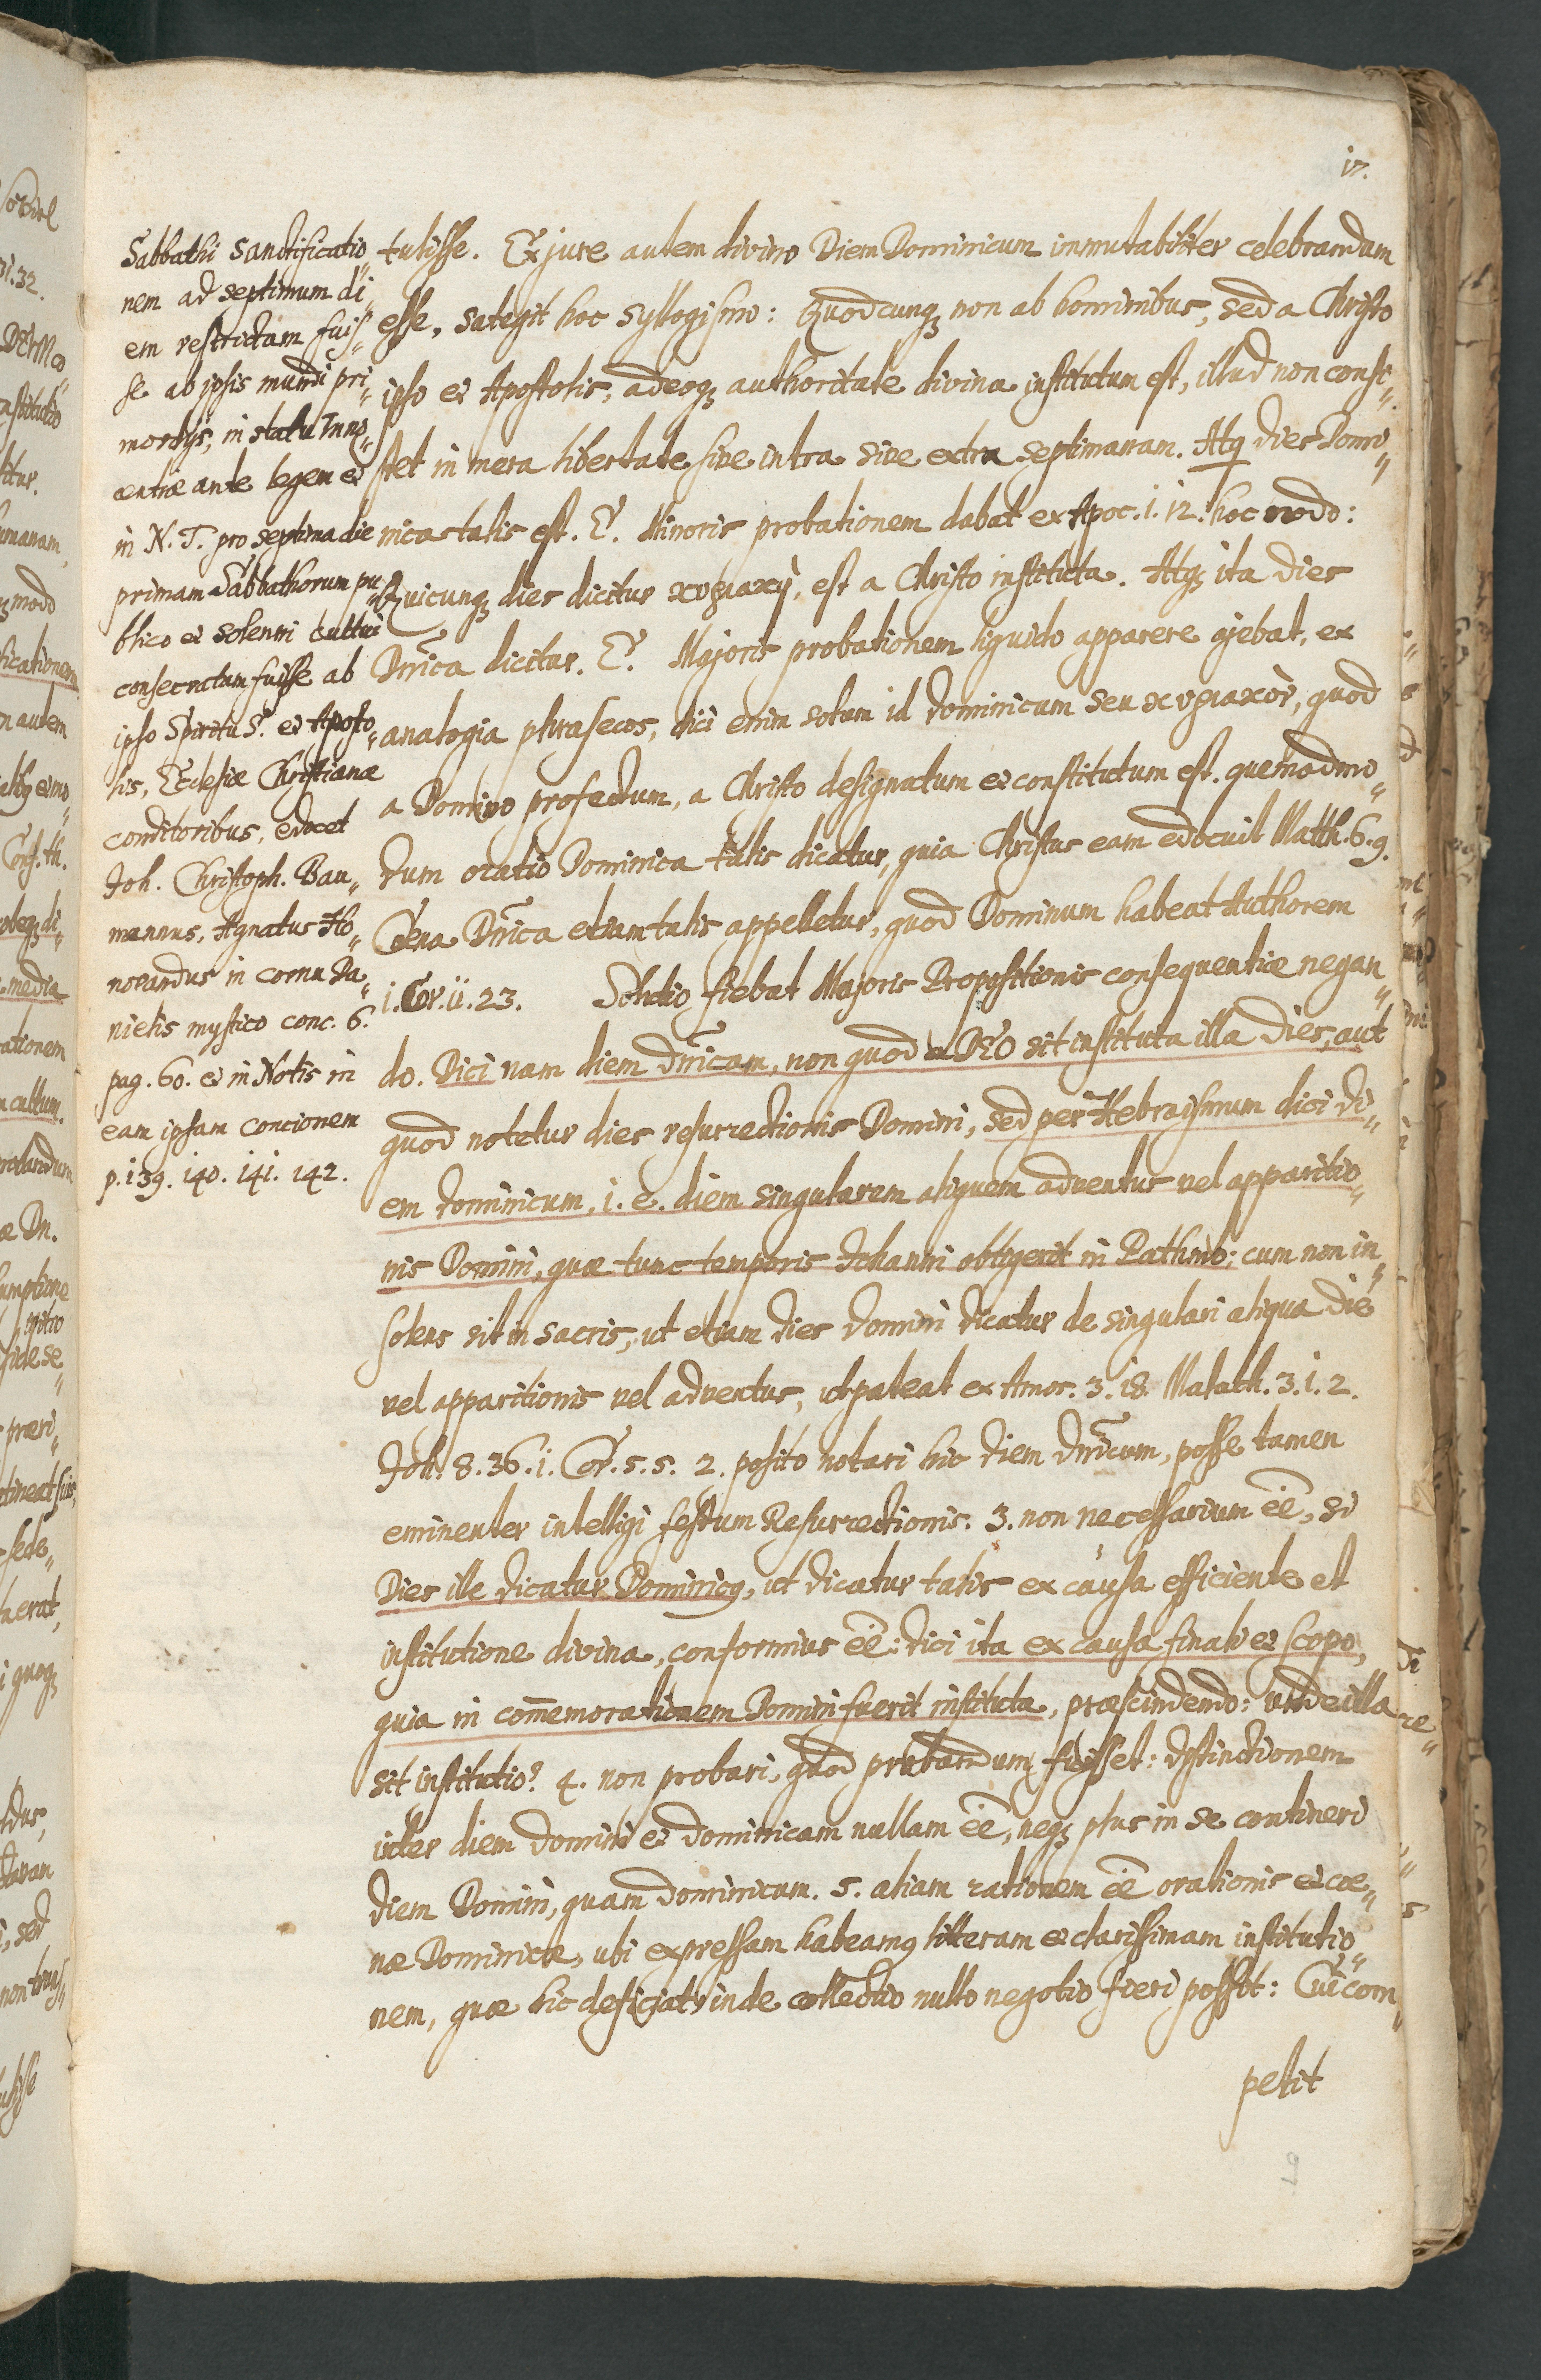 17.
Sabbathi sanctificatio„
nem ad septimum di„
em restrictam fuis„
se ab ipsis mundi pri„
mordijs, in statu Inno„
centiæ ante legem et
in N. T. pro septima die
primam Sabbathorum pu„
blico et solenni cultui
consecratam fuisse ab
ipso Spiritu S. et Aposto„
lis, Ecclesiæ Christianæ
conditoribus, edocet
Joh. Christoph. Bau„
mannus, Agnatus Ho„
norandus in cornu Da„
nielis mystico conc. 6.
pag. 60. et in Notis in
eam ipsam concionem
p. 139. 140. 141. 142.
tulisse. Ex jure autem divino Diem Dominicum immutabiliter celebrandam
esse, sategit hoc syllogismo: Quodcunqz non ab hominibus, sed a Christo
ipso et Apostolis, adeoqz authoritate divina institutum est, illud non consi„
stet in mera libertate sive intra sive extra septimanam. Atq dies Domi„
nica talis est. E. Minoris probationem dabat ex Apoc. 1. 12. hoc modo:
Quicunqz dies dicitur κυριακὴ, est a Christo instituta. Atqz ita dies
Dn̄ica dicitur. E. Majoris probationem liquido apparere ajebat, ex
analogia phraseos, dici enim solum id dominicum seu κυριακὸν, quod
a Domino profectum, a Christo designatum et constitutum est. quemadmo„
dum oratio Dominica talis dicatur, quia Christus eam edocuit Matth. 6. 9.
Cœna Dn̄ica etiam talis appelletur, quod Dominum habeat Authorem
1. Cor. 11. 23. Solutio fiebat Majoris Propositionis consequentiæ negan„
do. Dici nam diem dn̄icam, non quod a DEO sit instituta illa dies, aut
quod notetur dies resurrectionis Domini, sed per Hebraismum dici di„
em dominicum, i. e. diem singularem aliquem adventus vel apparitio„
nis Domini, quæ tunc temporis Johanni obtigerit in Pathmo: cum non in„
solens sit in sacris, ut etiam dies Domini dicatur de singulari aliqua die
vel apparitionis vel adventus, ut pateat ex Amos. 3. 18. Malach. 3. 1. 2.
Joh. 8. 36. 1. Cor. 5. 5. 2. posito notari hic diem dn̄icum, posse tamen
eminenter intelligi festum Resurrectionis. 3. non necessarium ēe, si
Dies ille dicatur Dominicq, ut dicatur talis ex causa efficiente et
institutione divina, conformius ēe: dici ita ex causa finali et scopo,
quia in com̄emorationem Domini fuerit instituta, præscindendo: unde illa
sit institutio? 4. non probari, quod probandum fuisset: distinctionem
inter diem Domini et dominicam nullam ēe, neqz plus in se contineri
diem Domini, quam dominicum. 5. aliam rationem ēe orationis et cœ„
næ Dominicæ, ubi expressam habeamq litteram et clarissimam institutio„
nem, quæ hic deficiat, inde collectio nullo negotio fieri possit: Cui com„
petit
9